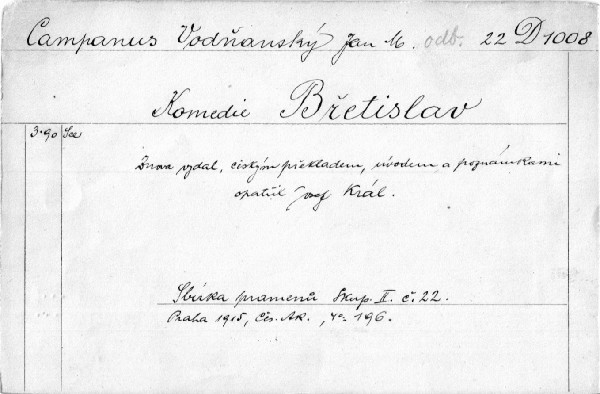 Campanus Vodňanský Jan M. odb. 22 D 1008
Komedie Břetislav
3·90
Znova vydal, českým překladem, úvodem a poznámkami
opatřil Josef Král.
Sbírka pramenů Skup. II. č. 22.
Praha 1915, Čes. Ak., 196.